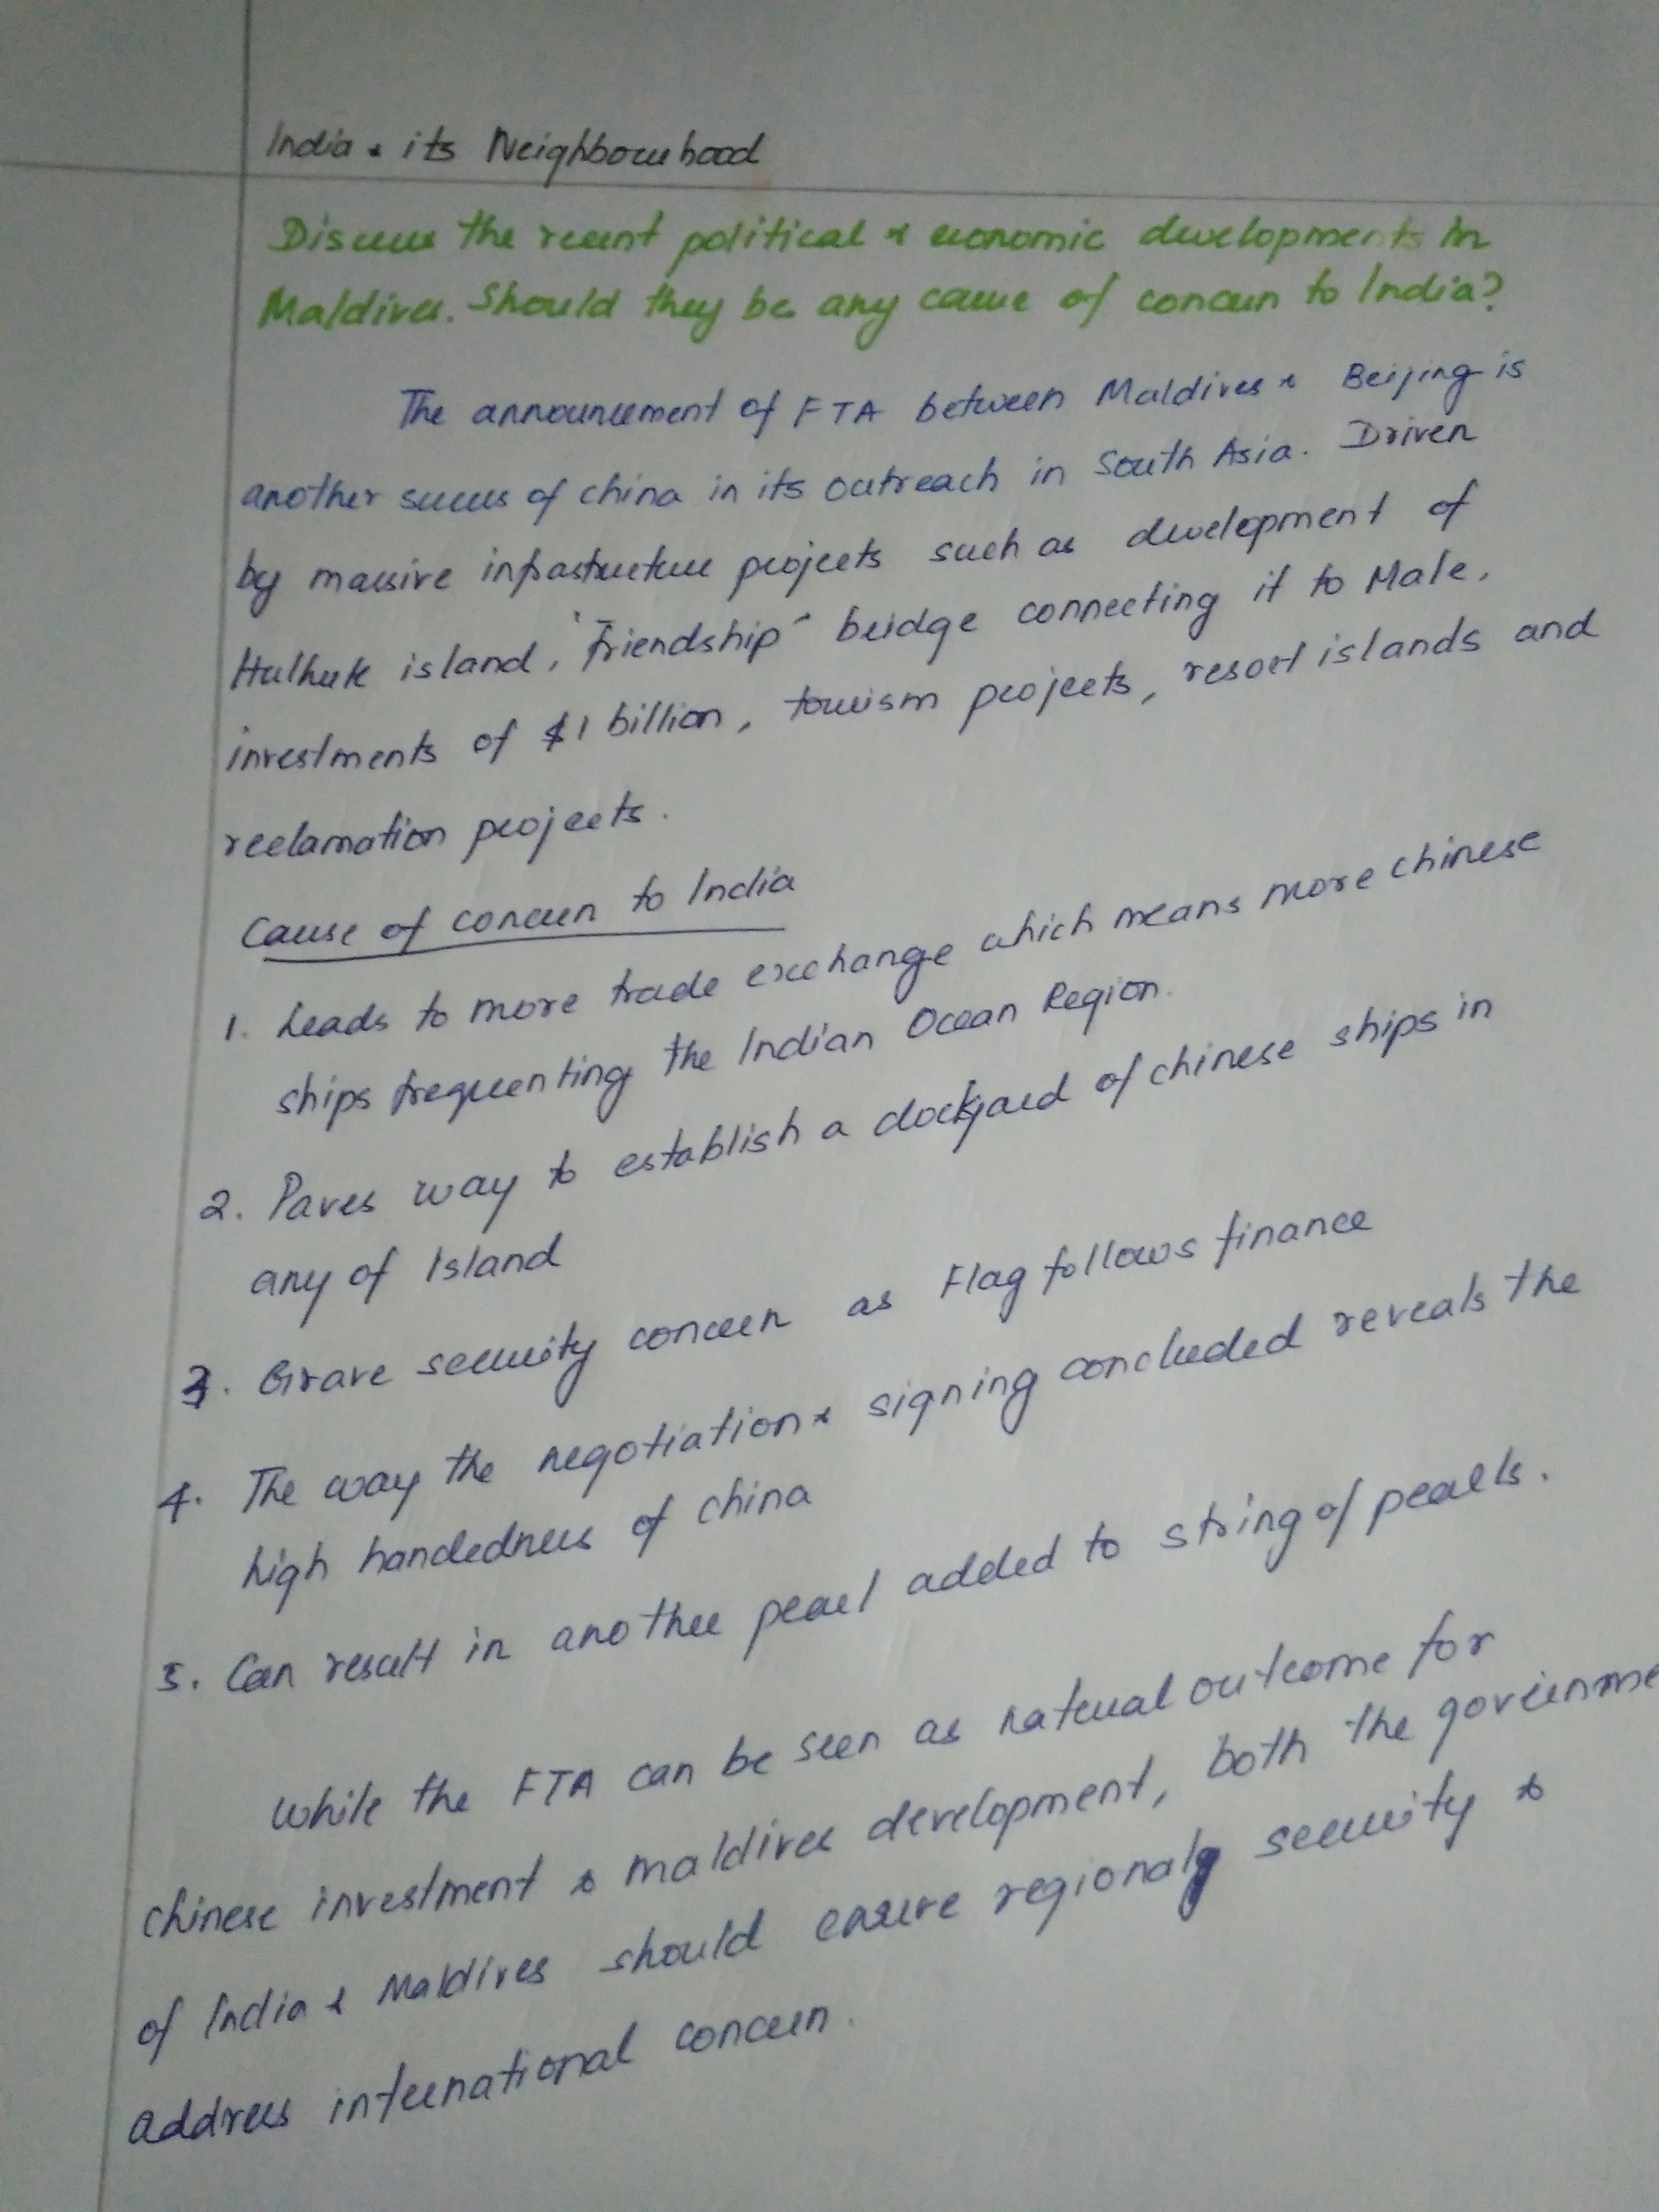 India & its Neighbourhood
Discuss the recent political & economic developments in
Maldives. Should they be any cause of concern to India?
The announcement of FTA between Maldives & Beijing is
another success of china in its outreach in South Asia. Driven
by massive infrastructure projects such as development of
Hulhule island, "Friendship" bridge connecting it to Male,
investments of $1 billion, tourism projects, resort islands and
reclamation projects.
Cause of concern to India
1. Leads to more trade exchange which means more chinese
ships frequenting the Indian Ocean Region.
2. Paves way to establish a dockyard of chinese ships in
any of Island
3. Grave security concern as Flag follows finance
4. The way the negotiation & signing concluded reveals the
high handedness of china
5. Can result in another pearl added to string of pearls.
While the FTA can be seen as natural outcome for
chinese investment & maldives development, both the governme
of India & Maldives should ensure regional security &
address international concern.